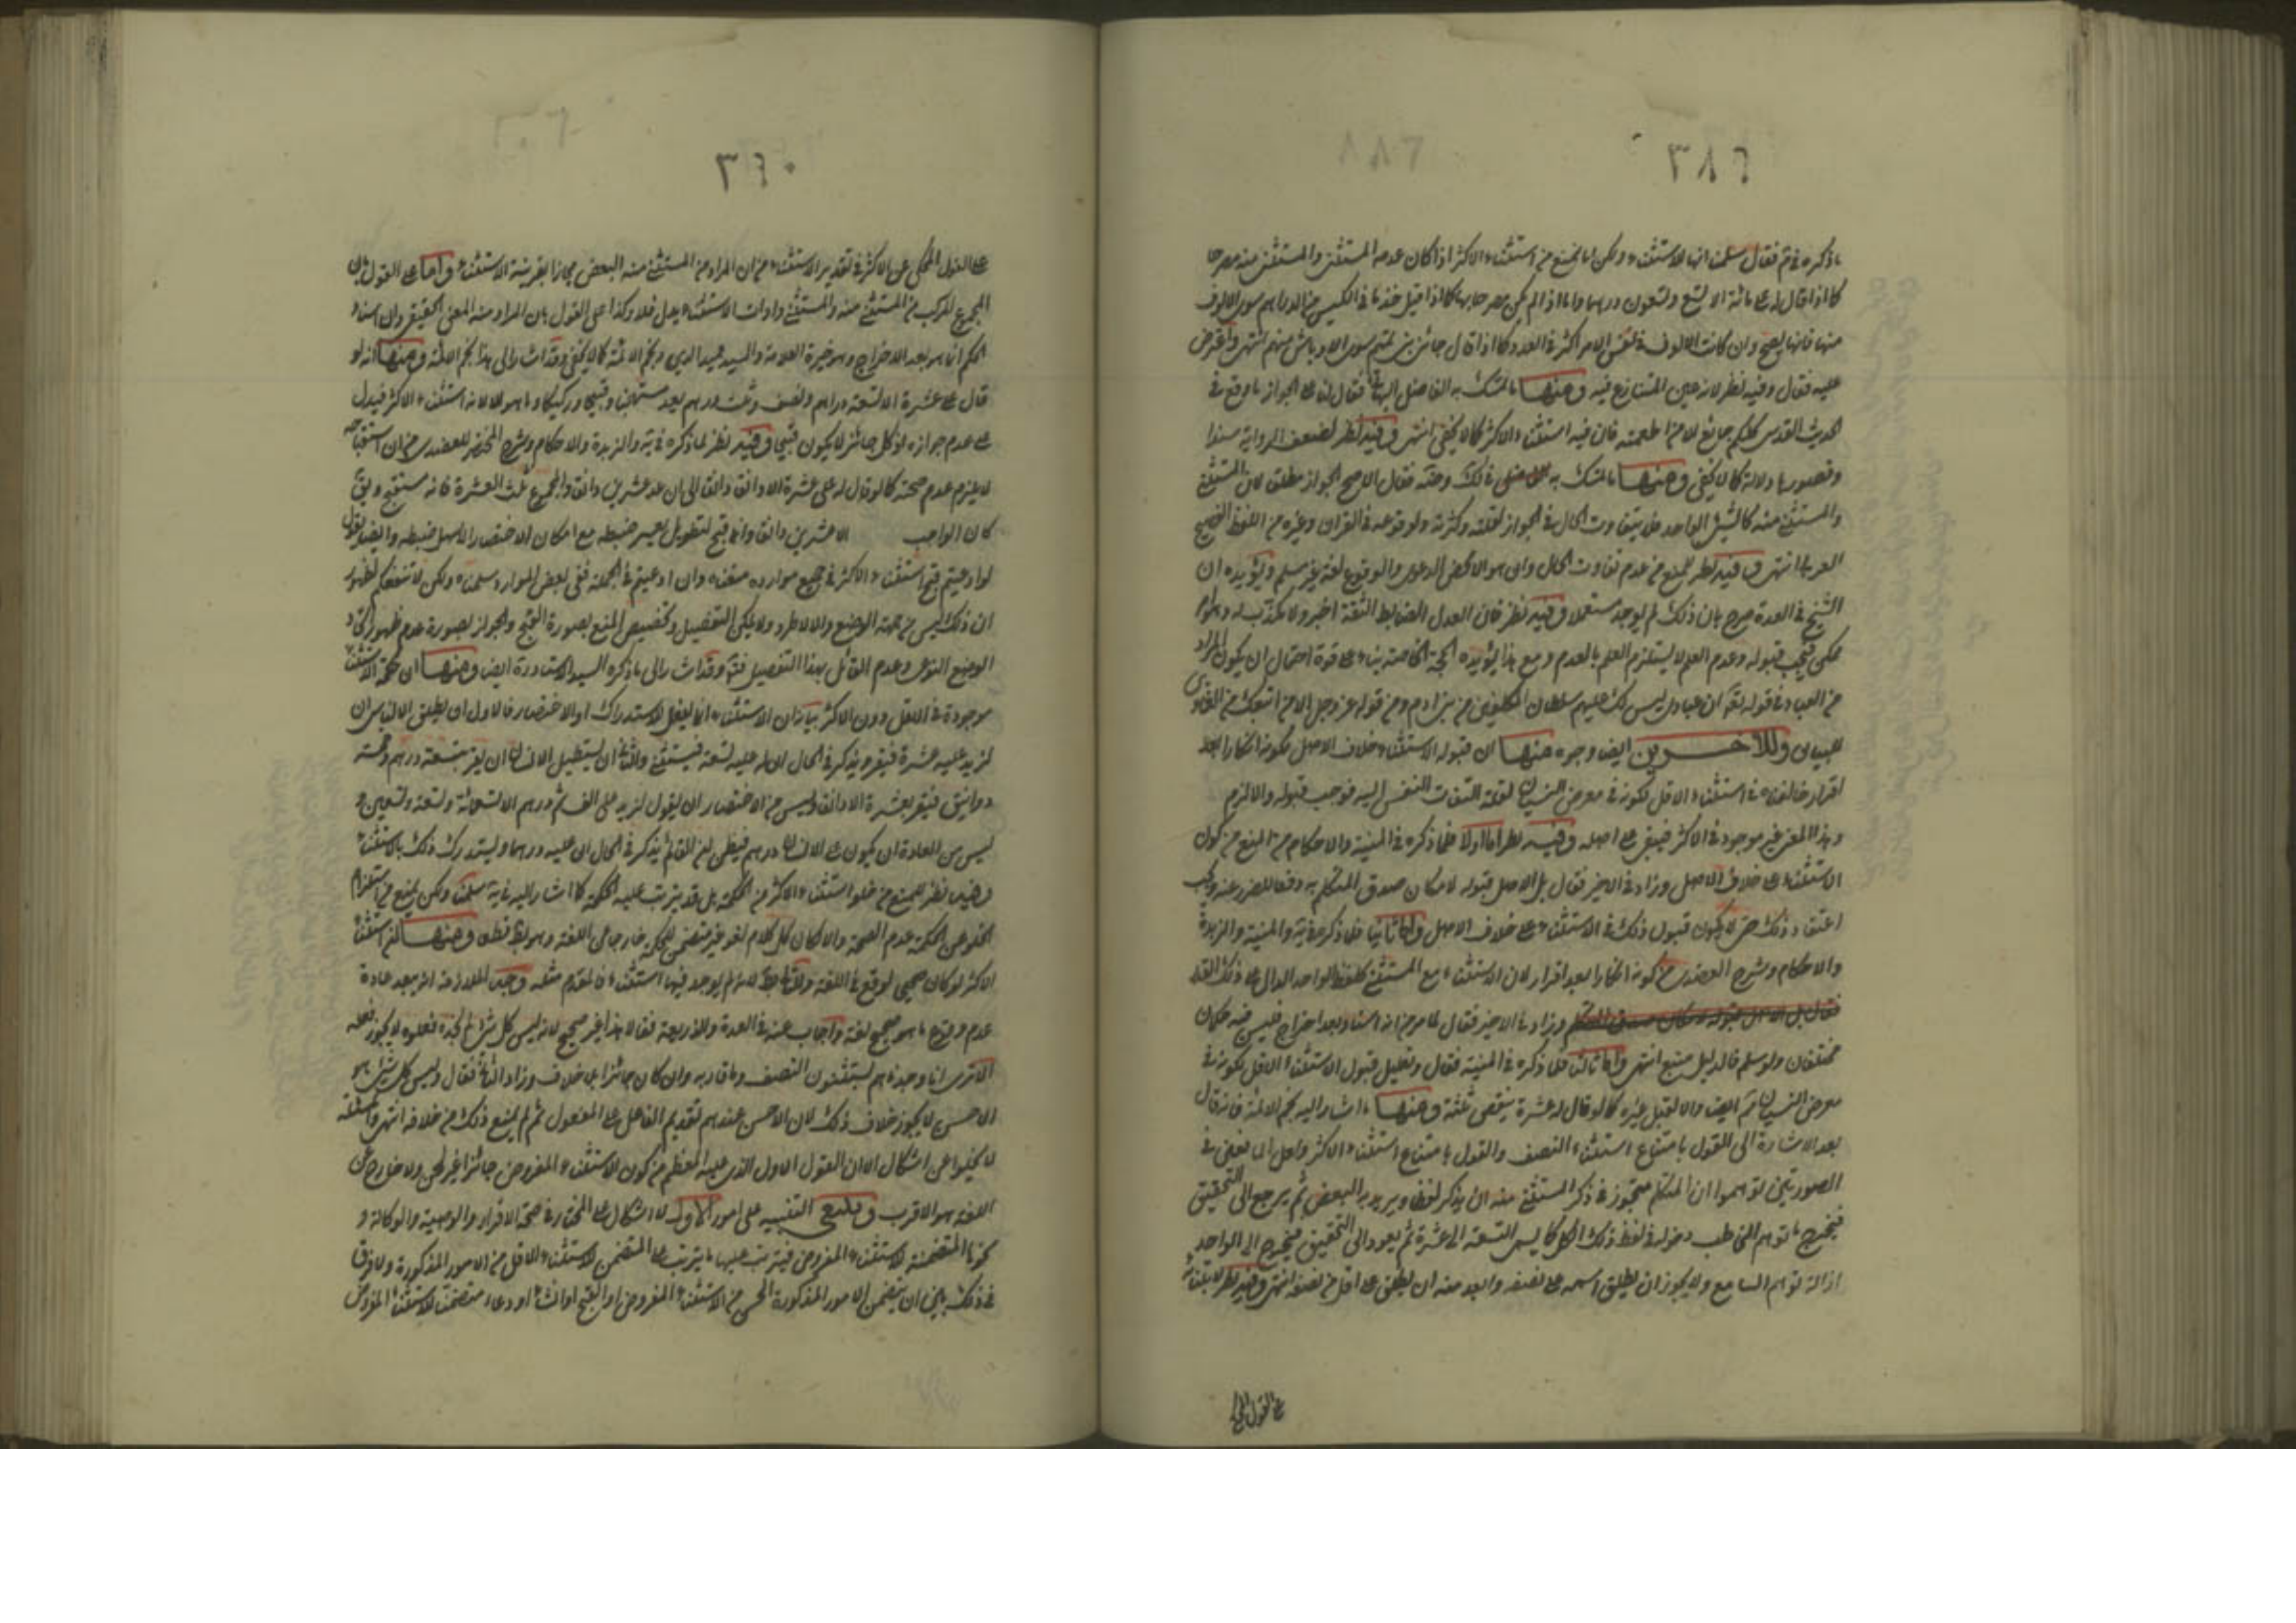 ٣٨٩
ما ذكره في ثم فقال سلمنا انها للاستثناء ولكن انما يمنع من استثناء الاكثر اذا كان عدد المستثنى والمستثنى منه مصرحا
كما اذا قال له علي مائة الا تسع وتسعون درهما واما اذا لم يكن مصرحا بها كما اذا قيل خذ ما في الكيس من الدراهم سوى الزيوف
منها فانها يصح وان كانت الزيوف في نفس الامر اكثر في العدد وكما اذا قال جائني بنو تميم سوى الاوباش منهم انتهى واعترض
عليه فقال وفيه نظر لانه عين المتنازع فيه ومنها ما تمسك به الفاضل البهائي فقال لنا على الجواز ما وقع في
الحديث القدسي كلكم جائع الا من اطعمته فان فيه استثناء الاكثر كما لا يخفى انتهى وفيه نظر لضعف الرواية سندا
وقصورها دلالة كما لا يخفى ومنها ما تمسك به في ذلك وحقه فقال الاصح الجواز مطلق لان المستثنى
والمستثنى منه كالشيء الواحد فلا يتفاوت الحال في الجواز لقلته وكثرته ولوقوعه في القران وغيره من اللفظ الفصيح
العربي انتهى وفيه نظر للمنع من عدم تفاوت الحال وان هو الا محض الدعوى والوقوع لغة غير مسلم ويؤيده ان
الشيخ في العدة صرح بان ذلك لم يوجد مستعملا وفيه نظر فان العدل الضابط الثقة اخبر ولا مكذب له
ممكن فيجب قبوله وعدم العلم لا يستلزم العلم بالعدم ومع هذا يؤيده الحجة على قوة احتمال ان يكون المراد
من العباد في قوله تعالى ان عبادي ليس لك عليهم سلطان المكلفين من بني ادم ومن قوله عز وجل الا من اتبعك من الغاوين
للبيان وللآخرين ايضا وجوه منها ان قبوله الاستثناء خلاف الاصل لكونه انكارا بعد
اقرار خالفناه في استثناء الاقل لكونه في معرض النسيان لقلة التفات النفس اليه فوجب قبوله والا لزم
وهذا المعنى غير موجود في الاكثر فيبقى على اصله وفيه نظر اما اولا فلما ذكره في المنية والاحكام من المنع من كون
الاستثناء على خلاف الاصل وزاد في الاخير فقال بل الاصل قبوله لامكان صدق المتكلم به دفعا للضرر عنه ويجب
اعتقاد ذلك حتى لا يكون قبول ذلك في الاستثناء على خلاف الاصل واما ثانيا فلما ذكره في يه والمنية والزبدة
والاحكام وشرح العضدي من كونه انكارا بعد اقرار لان الاستثناء مع المستثنى كاللفظ الواحد الدال على ذلك القدر
وزاد في الاخير فقال لما مر من انه اسناد بعد اخراج فليس فيه حكمان
مختلفان ولو سلم فالدليل متبع انتهى واما ثالثا فلما ذكره في المنية فقال وتعليل قبول الاستثناء الاقل بكونه في
معرض النسيان ثم ايضا والا لقبل غيره كما لو قال له عشرة ينقص ثلثة ومنها ما اشار اليه نجم الائمة فانه قال
بعد الاشارة الى القول بامتناع استثناء النصف والقول بامتناع استثناء الاكثر ولعل المانعين في
الصورتين توهموا ان المتكلم متجوز في ذكر المستثنى منه ان يذكر لفظا ويريد به البعض ثم يرجع الى التحقيق
فيخرج ما توهم المخاطب دخوله في لفظ ذلك الكل كما ليس التسعة الى عشرة ثم يعود الى التحقيق فيخرج الى الواحد
ازالة لتوهم السامع ولا يجوز ان يطلق اسمه على نصفه وابعد منه ان يطلق على اقل من نصفه انتهى وفيه نظر لابتنائه
على القول المحكي
٣٩٠
على القول المحكي عن الاكثر في تقدير الاستثناء من ان المراد من المستثنى منه البعض مجازا بقرينة الاستثناء واما على القول بان
المجموع المركب من المستثنى منه والمستثنى واداة الاستثناء يدل فلا وكذا على القول بان المراد منه المعنى الحقيقي وان اسناد
الحكم انما هو بعد الاخراج وهو خيرة العلامة والسيد عميد الدين ونجم الائمة كما لا يخفى وقد اشار الى هذا نجم الائمة ومنها انه لو
قال علي عشرة الا تسعة دراهم ونصف وثلث درهم يعد مستهجنا وقبيحا وركيكا وما هو الا لانه استثناء الاكثر فيدل
على عدم جوازه اذ كل جائز لا يكون قبيحا وفيه نظر لما ذكره في يه والزبدة والاحكام وشرح المختصر للعضدي من ان استقباحه
لا يلزم عدم صحته كما لو قال له علي عشرة الا دانقا ودانقا الى ان عد عشرين دانقا والمجموع ثلث العشرة فانه مستقبح
كان الواجب الا عشرين دانقا وانما قبح لتطويل يعسر ضبطه مع امكان الاختصار الاسهل ضبطه وايضا نقول
لو ادعيتم قبح استثناء الاكثر في جميع موارده منعناه وان ادعيتم في الجملة ففي بعض الموارد سلمناه ولكن لا تنفعكم لظهور
ان ذلك ليس من جهة الوضع والا لاطرد ولا يمكن التفصيل وتخصيص المنع بصورة القبح والجواز بصورة عدم ظهور اتحاد
الوضع النوعي وعدم القائل بهذا التفصيل فتم وقد اشار الى ما ذكره السيد الاستاد ره ايضا ومنها ان حكمة الاستثناء
موجودة في الاقل دون الاكثر بيانه ان الاستثناء انما يفعل للاستدراك او الاختصار فالاول ان يظن الانسان ان
لزيد عليه عشرة فيقر ويذكر في الحال ان له عليه تسعة فيستثني والثاني ان يستطيل الانسان ان يقر بتسعة دراهم وخمسة
دوانيق فيقر بعشرة الا دانقا وليس من الاختصار ان يقول لزيد علي الف درهم الا تسعمائة وتسعة وتسعين و
ليس من العادة ان يكون على الانسان درهم فيظن انه الف ثم يذكر في الحال ان عليه درهما ويستدرك ذلك بالاستثناء
وفيه نظر للمنع من خلو استثناء الاكثر من الحكمة بل قد يترتب عليه الحكمة كما اشار اليه في يه سلمنا ولكن نمنع من استلزام
الخلو عن الحكمة عدم الصحة والا لكان كل كلام لغو غير متضمن لحكمة خارجا عن اللغة وهو بط قطعا ومنها ان استثناء
الاكثر لو كان صحيحا لوقع في اللغة والتالي بط لانه لم يوجد فيها استثناء فالمقدم مثله وجه الملازمة انه يبعد عادة
عدم وقوع ما هو صحيح لغة واجاب عنه في العدة والذريعة فقالا هذا غير صحيح لانه ليس كل شيء لم نجده فعلوه لا يجوز فعله
الا ترى انا وجدناهم يستثنون النصف وما قاربه وان كان جائزا بلا خلاف وزاد الثاني فقال وليس كل شيء هو
الاحسن لا يجوز خلاف ذلك لان الاحسن عندهم تقديم الفاعل على المفعول ثم لم يمنع ذلك من خلافه انتهى والمسئلة
لا يخلو عن اشكال الا ان القول الاول الذي عليه المعظم من كون الاستثناء المفروض جائزا غير لحن ولا خارج عن
اللغة هو الاقرب وينبغي التنبيه على امور الاول لا اشكال على المختار في صحة الاقرار والوصية والوكالة و
نحوها المتضمنة للاستثناء المفروض فيترتب عليها ما يترتب على المتضمن للاستثناء الاقل من الامور المذكورة ولا فرق
في ذلك بين ان يتضمن الامور المذكورة الحسن من الاستثناء المفروض او القبيح او دعاء متضمنا للاستثناء المفروض